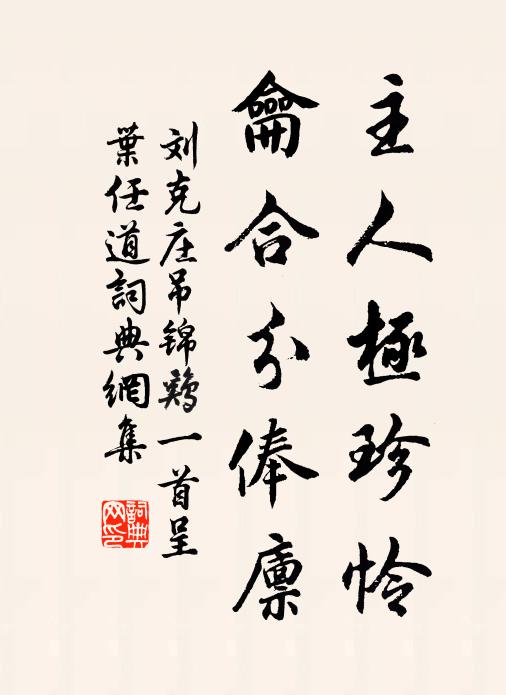 主人極珍怜
龠合分俸廪
刘克庄吊锦鶏一首呈
葉任道詞典網集
詞典网印